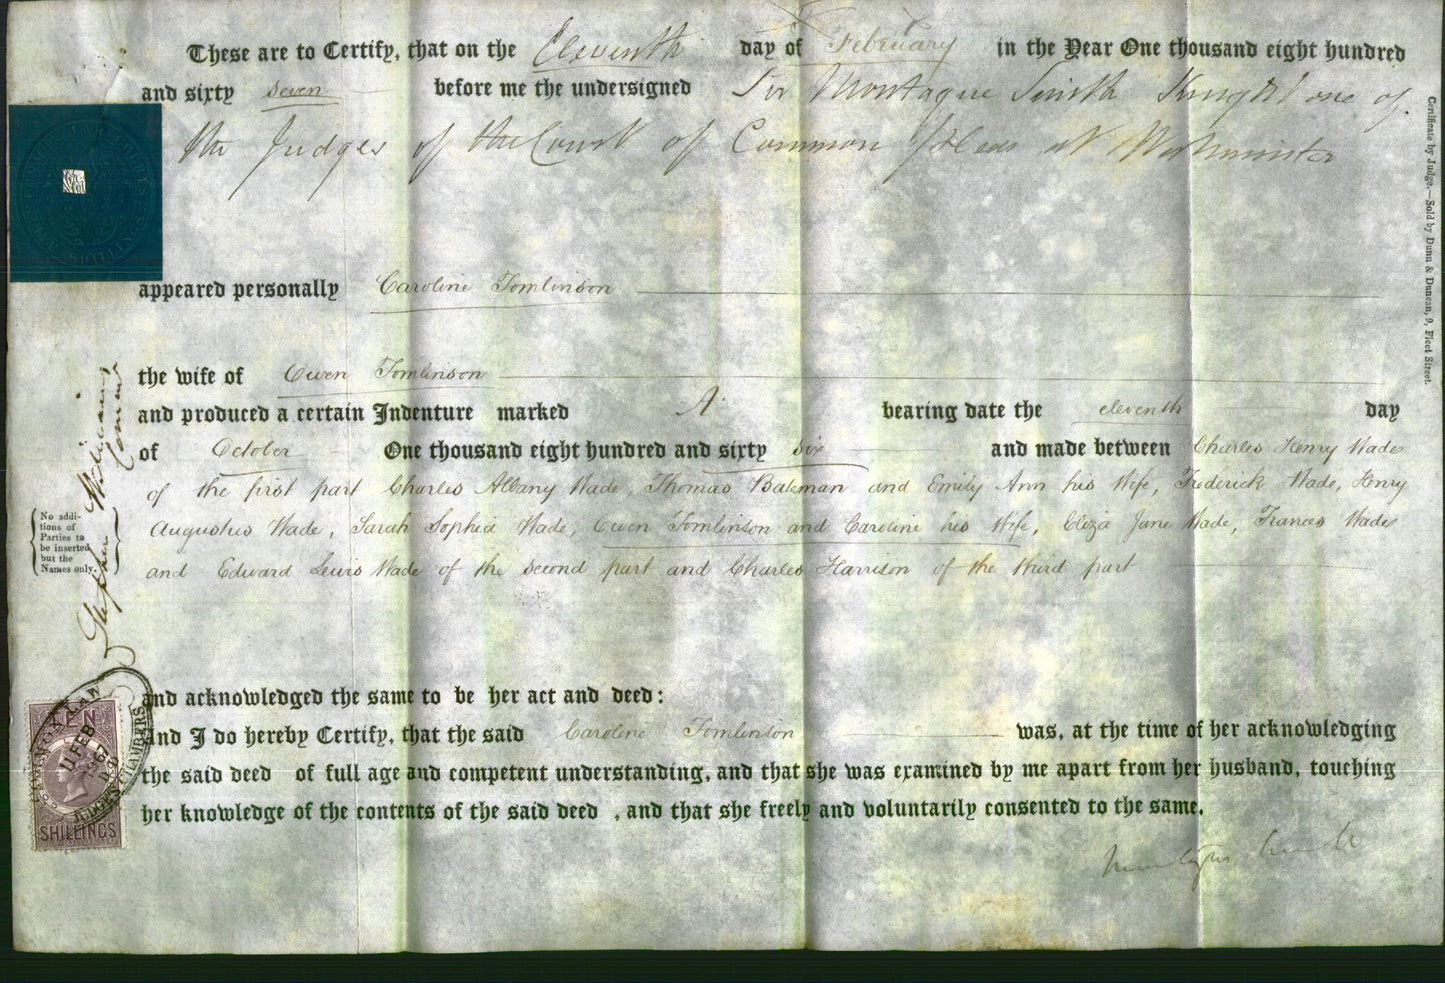 These are to Certify, that on the Eleventh day of February in the Year One thousand eight hundred
and sixty seven before me the undersigned Sir Montague Smith Knight one of
the Judges of the Court of Common Pleas at Westminster
appeared personally Caroline Tomlinson
the wife of Owen Tomlinson
and produced a certain Indenture marked A bearing date the eleventh day
of October One thousand eight hundred and sixty six and made between Charles Henry Wade
of the first part Charles Albany Wade, Thomas Bateman and Emily Ann his Wife, Frederick Wade, Henry
Augustus Wade, Sarah Sophia Wade, Owen Tomlinson and Caroline his Wife, Eliza Jane Wade, Frances Wade
and Edward Lewis Wade of the second part and Charles Harrison of the third part
and acknowledged the same to be her act and deed:
And I do hereby Certify, that the said Caroline Tomlinson was, at the time of her acknowledging
the said deed of full age and competent understanding, and that she was examined by me apart from her husband, touching
her knowledge of the contents of the said deed, and that she freely and voluntarily consented to the same.
Montague Smith
No addi-
tions of
Parties to
be inserted
but the
Names only.
Stephen Williams
TEN
SHILLINGS
11 FEB
1867
COMMON LAW
JUDGES CHAMBERS
Certificate by Judge.—Sold by Dunn & Duncan, 9, Fleet Street.